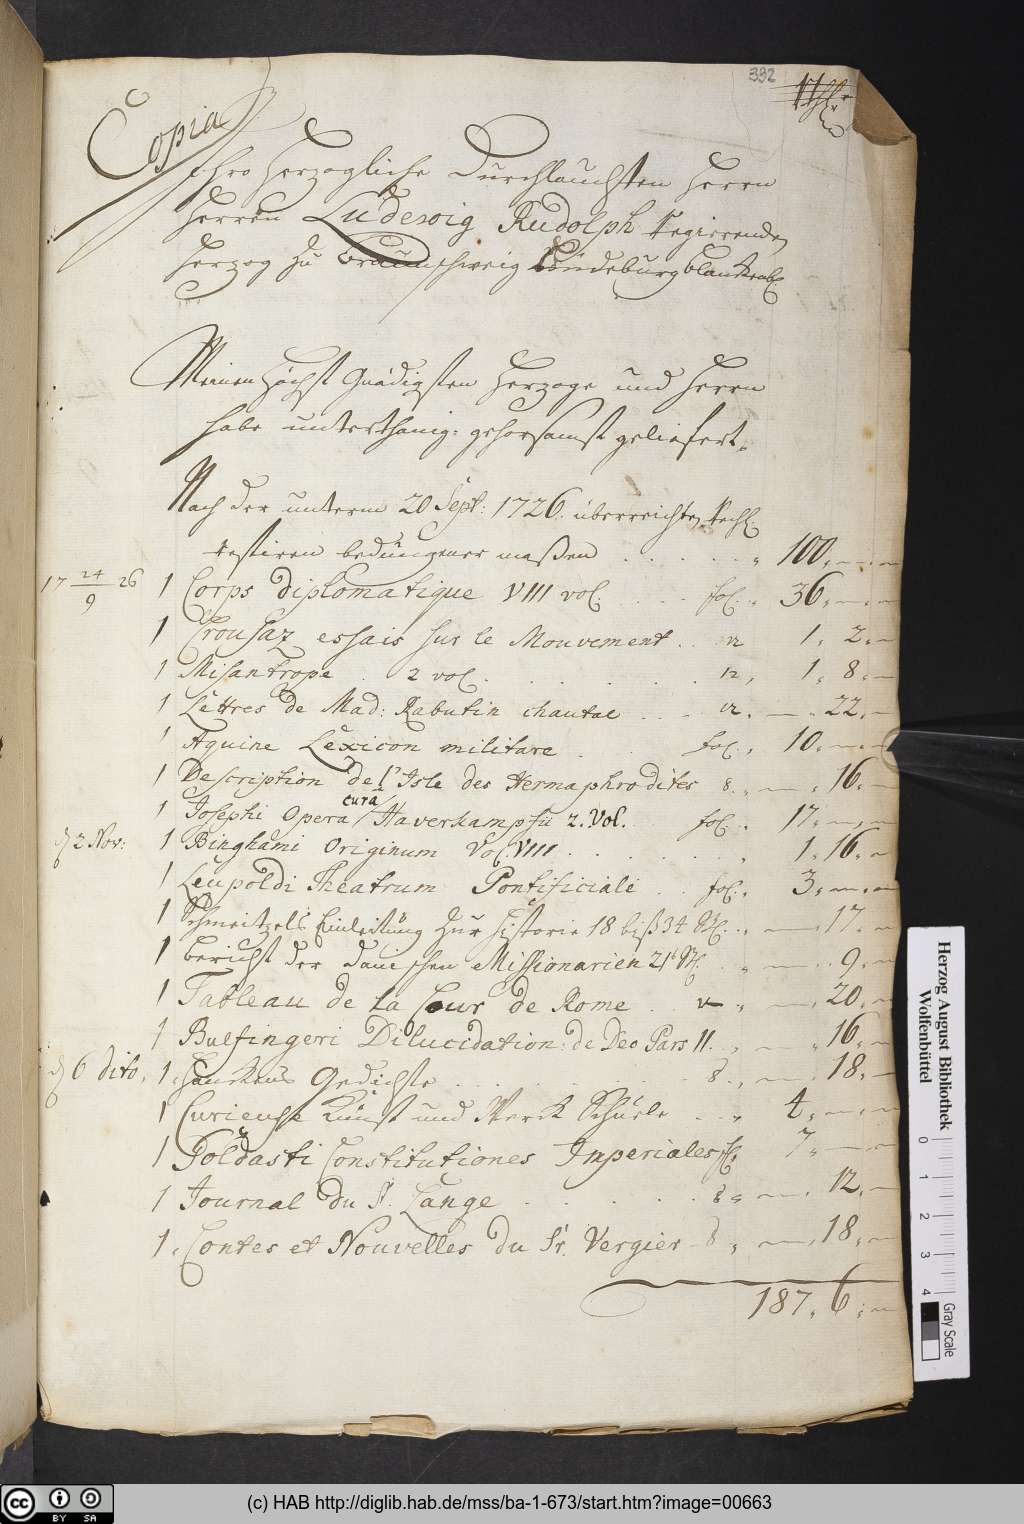 392
Copia
Ihro Herzogliche Durchlauchten Herrn
Herren Ludewig Rudolph Regierenden
Herzog zu Braunschweig Lüneburg Blankenb.
Meinen Höchst Gnädigsten Herzoge und Herrn
habe unterthänig: gehorsamst geliefert.
Nach der unterm 20 Sept: 1726. überreichten Rechn.
restiren bedungener maßen . . . . . . „ 100.
17 24/9 26 1 Corps diplomatique VIII vol. . . . fol. „ 36.
1 Crousaz essais sur le Mouvement . . 12 1. 2.
1 Misantrope . 2 vol. . . . . . . 12, 1. 8.
1 Lettres de Mad: Rabutin chantal . . . 12. 22.
1 Aquine Lexicon militare . . . fol. „ 10.
1 Description de l'Isle des Hermaphrodites 8. 16.
1 Josephi Opera cura Haverkampsii 2. Vol. fol. 17.
d 2 Nov: 1 Binghami Originum Vol. VIII . . . . . . „ 1. 16.
1 Leupoldi Theatrum Pontificiale . . fol. „ 3.
1 Schmeitzels Einleitung zur Historie 18 biß 34 17.
1 Bericht der Dänischen Missionarien 21 9.
1 Tableau de la Cour de Rome . . 20.
1 Bulfingeri Dilucidation: de Deo Pars II. 16.
d 6 dito, 1 Hanckens Gedichte . . . . . . 8. 18.
1 Curieuse Kunst und Werck Schule . . „ 4.
1 Goldasti Constitutiones Imperiales fol. 7.
1 Journal du Sr. Lange . . . . . . 8 „ 12.
1 Contes et Nouvelles du Sr. Vergier 8 „ 18.
187. 6.
Herzog August Bibliothek
Wolfenbüttel
0 1 2 3 4
Gray Scale
(c) HAB http://diglib.hab.de/mss/ba-1-673/start.htm?image=00663
cc BY SA